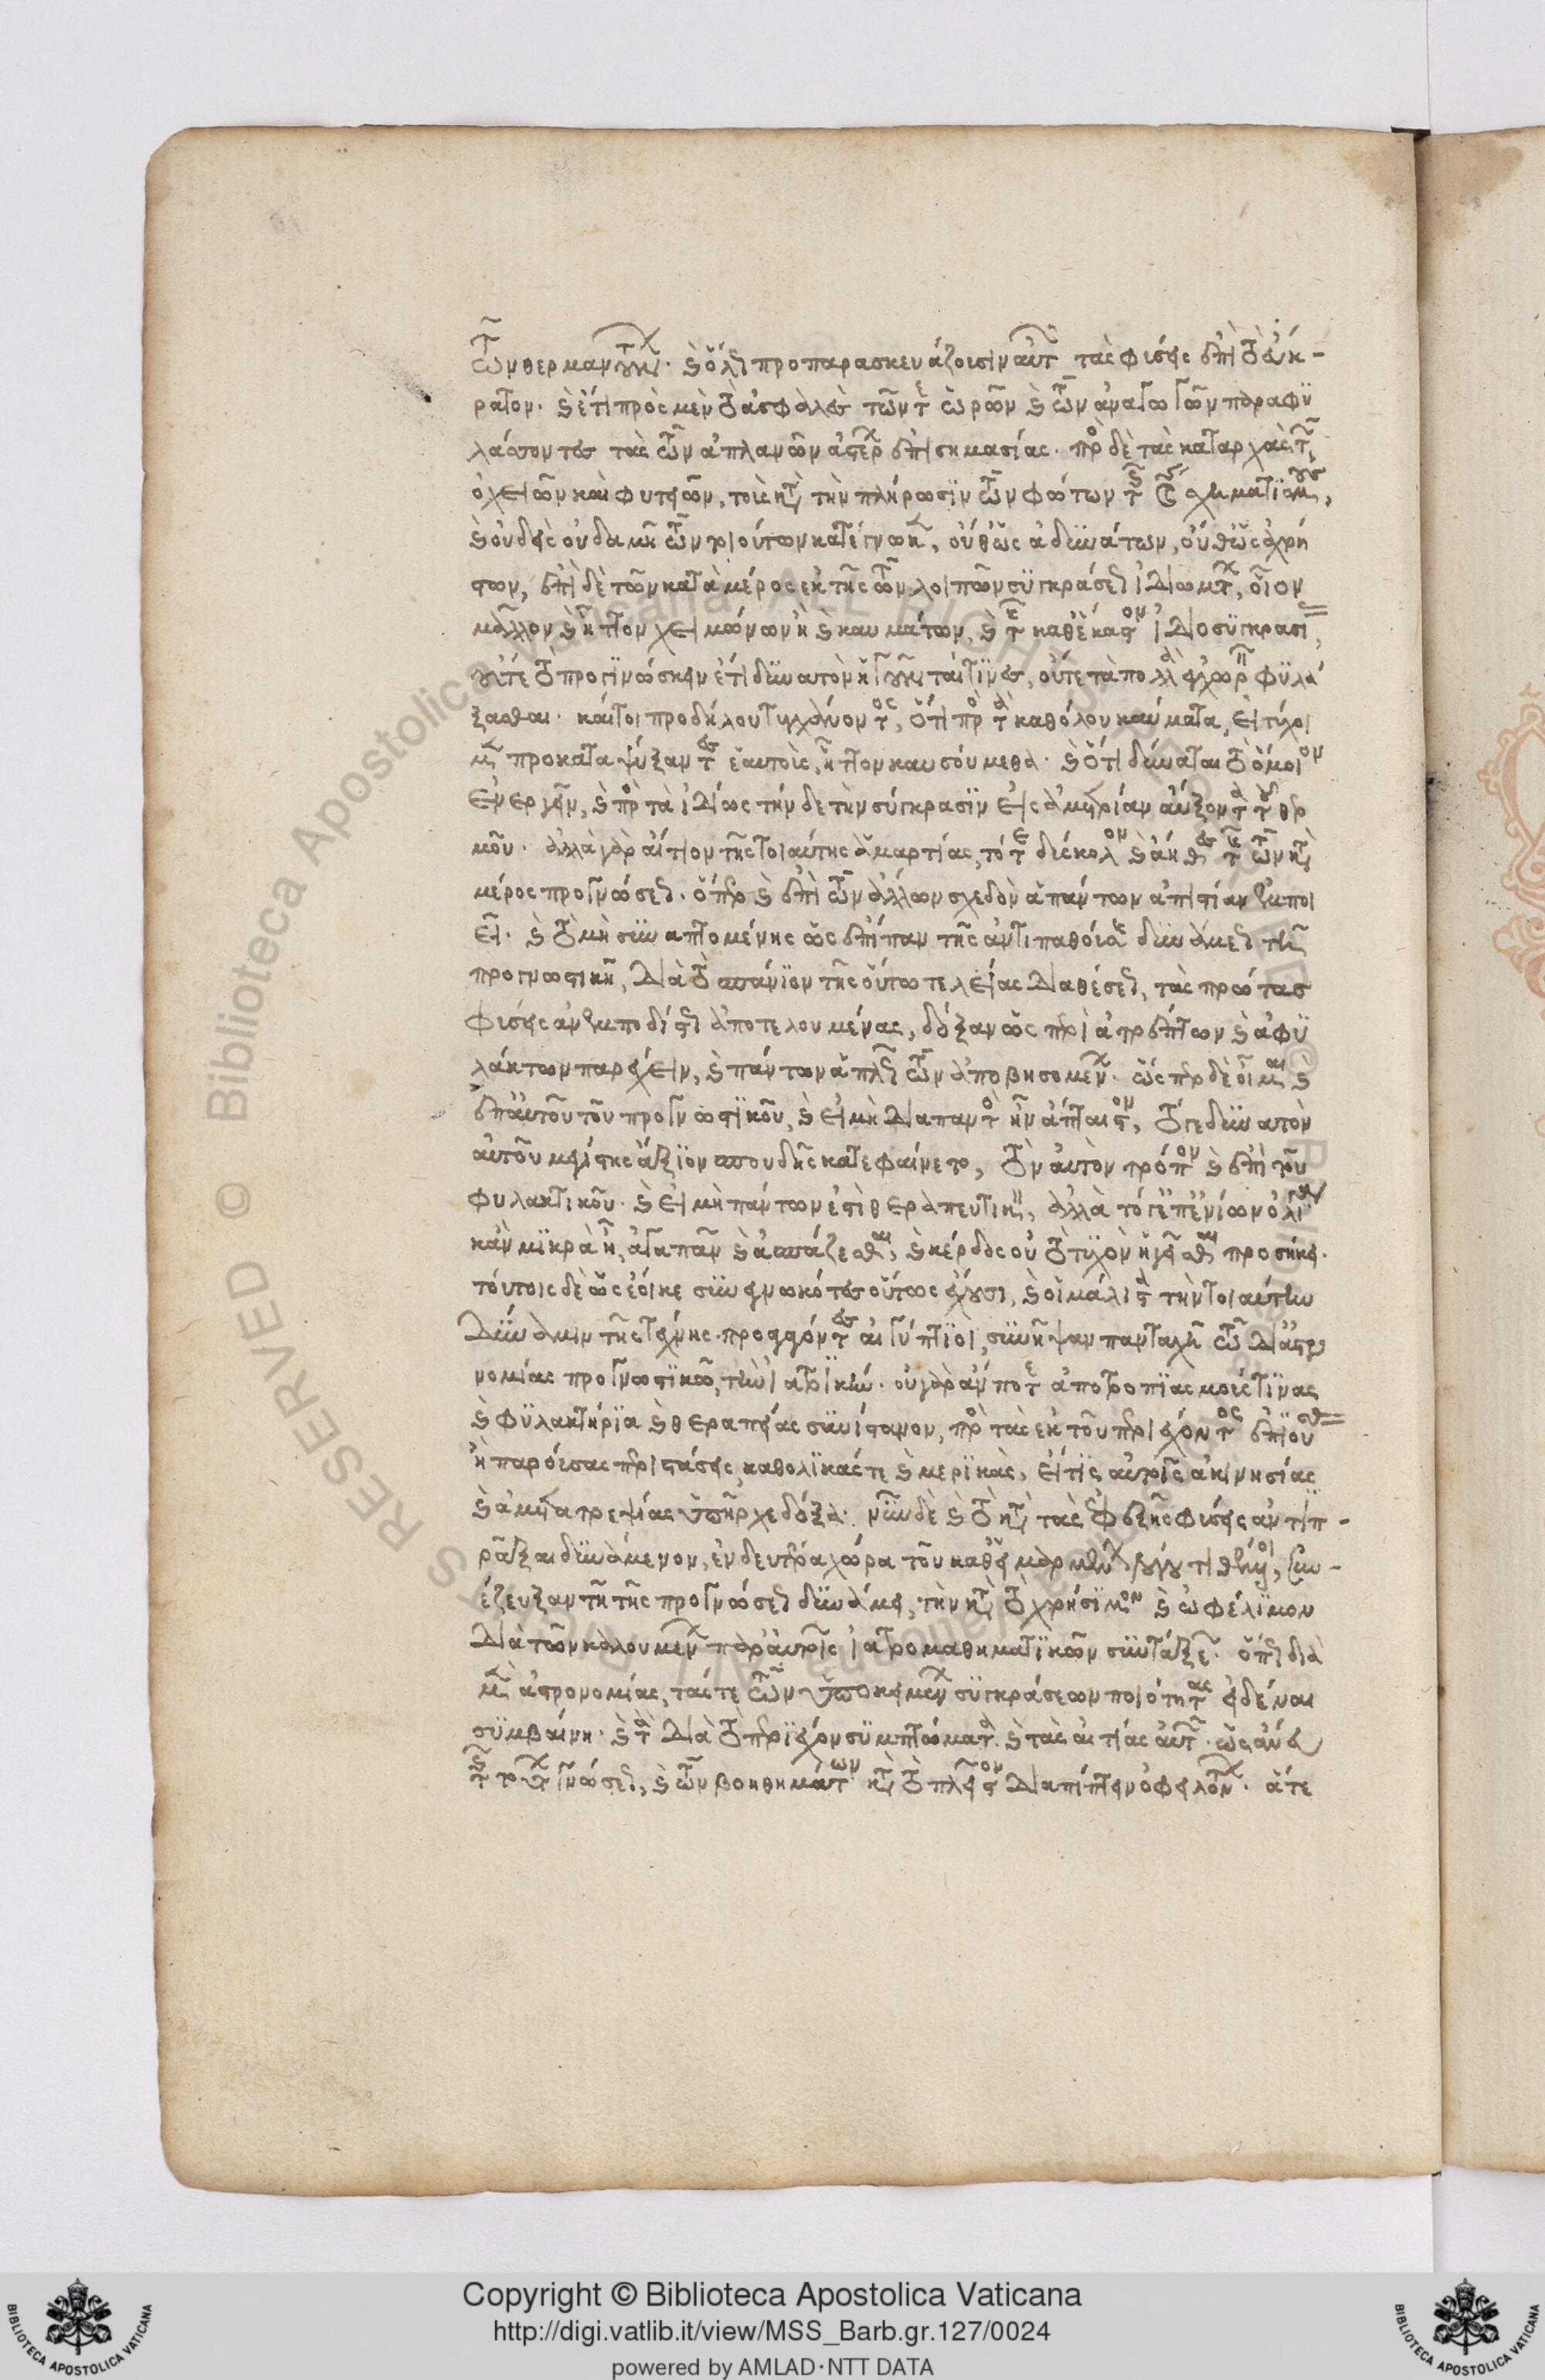 τῶν θερμαντικῶν. καὶ ὅλως προπαρασκευάζουσιν αὐτῶν τὰς φύσεις ἐπὶ τὸ εὔκ-
ρατον. καὶ ἔτι πρὸς μὲν τὸ ἀσφαλὲς τῶν τε ὡρῶν καὶ τῶν ἀναγωγῶν παραφυ
λάσσοντες τὰς τῶν ἀπλανῶν ἀστέρων ἐπισημασίας. πρὸς δὲ τὰς καταρχὰς τῶν
ὀχειῶν καὶ φυτειῶν, τοὺς κατὰ τὴν πλήρωσϊν τῶν φώτων τῆς σχηματϊσμούς,
καὶ οὐδεὶς οὐδαμῆ τῶν τοιούτων κατέγνωκεν, οὔθ' ὡς ἀδυνάτων, οὔθ' ὡς ἀχρή
στων, ἐπὶ δὲ τῶν κατὰ μέρος ἐκ τῆς τῶν λοιπῶν συγκράσεως ἰδιωμάτων, οἷον
μᾶλλον καὶ ἧττον χειμώνων ἢ καὶ καυμάτων, καὶ τῆς καθ' ἕκαστον ἰδιοσυγκρασίας,
οὔτε τὸ προγϊνώσκειν ἔτι δυνατὸν ἡγοῦνταί τϊνες, οὔτε τὰ πολλὰ ἐγχωρεῖν φυλά
ξασθαι. καίτοι προδήλου τυγχάνοντος, ὅτι πρὸς τὰ καθόλου καύματα, εἰ τύχοι
μεν προκαταψύξαντες ἑαυτοὺς, ἧττον καυσούμεθα. καὶ ὅτι δύναται τὸ ὅμοιον
ἐνεργεῖν, καὶ πρὸς τὰ ἰδίως τήνδε τὴν σύγκρασϊν εἰς ἀμετρίαν αὔξοντα τοῦ θερ
μοῦ. ἀλλὰ γὰρ αἴτιον τῆς τοιαύτης ἁμαρτίας, τό τε δύσκολον καὶ ἄηθες τῆς τῶν κατὰ
μέρος προγνώσεως. ὅπερ καὶ ἐπὶ τῶν ἄλλων σχεδὸν ἁπάντων ἀπιστίαν ἐμποι
εῖ. καὶ τὸ μὴ συναπτομένης ὡς ἐπίπαν τῆς ἀντιπαθούσης δυνάμεως τῇ
προγνωστικῇ, διὰ τὸ σπάνϊον τῆς οὕτω τελείας διαθέσεως, τὰς πρώτας
φύσεις ἀνεμποδίστως ἀποτελουμένας, δόξαν ὡς περὶ ἀτρέπτων καὶ ἀφυ
λάκτων παρέχειν, καὶ πάντων ἁπλῶς τῶν ἀποβησομένων. ὥσπερ δὲ οἶμαι καὶ
ἐπ' αὐτοῦ τοῦ προγνωστϊκοῦ, καὶ εἰ μὴ διαπαντὸς ἦν ἄπταιστον, τό γε δυνατὸν
αὐτοῦ μεγίστης ἄξϊον σπουδῆς κατεφαίνετο, τὸν αὐτὸν τρόπον καὶ ἐπὶ τοῦ
φυλακτικοῦ. καὶ εἰ μὴ πάντων ἐστὶ θεραπευτικὴ, ἀλλὰ τό γε ἐπ' ἐνίων
κἂν μϊκρὰ ᾖ, ἀγαπᾶν καὶ ἀσπάζεσθαι, καὶ κέρδος οὐ τὸ τυχὸν ἡγεῖσθαι προσήκει.
τούτοις δὲ ὡς ἔοικε συνεγνωκότες οὕτως ἔχουσι, καὶ οἱ μάλιστα τὴν τοιαύτην
δύναμιν τῆς τέχνης προαγαγόντες αἰγύπτϊοι, συνῆψαν πανταχῆ τῷ δι' ἀστρο
νομίας προγνωστϊκῷ, τὴν ἰατρϊκήν. οὐ γὰρ ἄν ποτε ἀποτροπϊασμούς τϊνας
καὶ φυλακτήρϊα καὶ θεραπείας συνίστανον, πρὸς τὰς ἐκ τοῦ περιέχοντος ἐπϊούσας
ἢ παρούσας περιστάσεις καθολϊκάς τε καὶ μερϊκὰς, εἴ τϊς αὐτοῖς ἀκινησίας
καὶ ἀμετατρεψίας ὑπῆρχε δόξα. νῦν δὲ καὶ τὸ κατὰ τὰς ἐφεξῆς φύσεις ἀντιπ-
ρᾶξαι δυνάμενον, ἐν δευτέρα χώρα τοῦ καθ' εἱμαρμένην λόγου τιθέμενοι, συν-
έζευξαν τῇ τῆς προγνώσεως δυνάμει, τὴν κατὰ τὸ χρήσϊμον καὶ ὠφέλϊμον
διὰ τῶν καλουμένων παρ' αὐτοῖς ἰατρομαθηματϊκῶν συντάξεων. ὅπως διὰ
μὲν ἀστρονομίας, τάς τε τῶν ὑποκειμένων συγκράσεων ποιότητας εἰδέναι
συμβαίνη. καὶ τὰ διὰ τὸ περϊέχον συμπτώματα. καὶ τὰς αἰτίας αὐτῶν. ὡς ἄνευ
τῆς τούτων γνώσεως, καὶ τῶν βοηθημάτων κατὰ τὸ πλεῖστον διαπίπτειν ὀφειλόντων. ἅτε
Copyright © Biblioteca Apostolica Vaticana
http://digi.vatlib.it/view/MSS_Barb.gr.127/0024
powered by AMLAD·NTT DATA